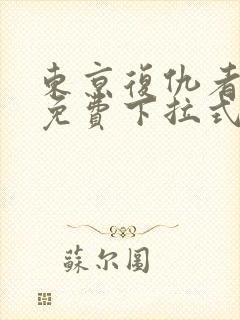 東京復仇者
免費下拉式
蘇尔圆